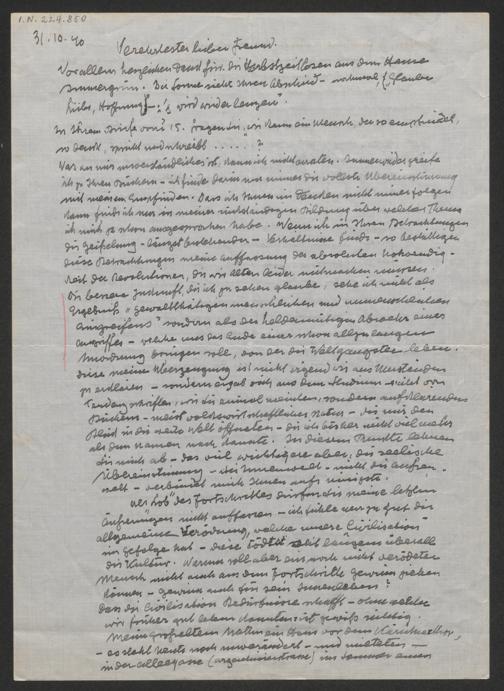 I.N. 224.850
31.10.40
Verehrtester lieber Freund.
Vor allem herzlichen Dank für die Herbstzeitlosen aus dem Hause
Immergrün. Die Sonne nicht Ihren Abschied – nochmal (Glaube
Liebe, Hoffnung) – : es wird wieder lenzen.
In Ihrem Briefe vom 15. fragen Sie, wie kann ein Mensch, der so empfindet,
so denkt, spricht und schreibt ..... ?
Was an mir unverständliches ist, kann ich nicht erraten. Immer wieder greife
ich zu Ihren Büchern – ich finde darin nur immer die vollste Übereinstimmung
mit meinem Empfinden. Dass ich Ihnen im Denken nicht immer folgen
kann
ich mich ja schon ausgesprochen habe. Wenn ich in Ihren Betrachtungen
die Geißelung – längst bestehender – Verhältnisse finde – so bestätigen
diese Betrachtungen meine Auffassung der absoluten Notwendig-
keit der Revolutionen, die wir alten leider mitmachen müssen.
Die bessere Zukunft, die ich zu sehen glaube, sehe ich nicht als
Ergebnis „gewalttätigen menschlichen und unmenschlichen
Ausgreifens" sondern als der heldenmütigen Abwehr eines
Angriffes – welche uns das Ende einer schon allzulangen
bringen soll, von der die
diese meine Überzeugung ist nicht irgend wie am Verstande
zu erklären – sondern ergab sich aus dem Studium nicht von
Tendenzschriften, wie Sie einmal meinten, sondern aufklärenden
Büchern – meist volkswirtschaftlicher Natur – die mir den
Blick in die weite Welt öffneten – die ich bisher nicht viel mehr
als dem Namen nach kannte. In diesem Punkte lehnen
Sie mich ab – das viel wichtigere aber, die seelische
Übereinstimmung – die Innenwelt – nicht die Außen-
welt – verbindet mich Ihnen aufs innigste.
Als „Lob" des Fortschrittes dürfen Sie meine letzten
Äußerungen nicht auffassen – ich fühle nur zu gut die
allgemeine Verödung, welche unsere Civilisation
im Gefolge hat – diese tödtet seit langem überall
die Kultur. Warum soll aber ein noch nicht verödeter
Mensch nicht auch aus dem Fortschritte Gewinn ziehen
können – Gewinn auch für sein Innenleben?
Dass die Civilisation Bedürfnisse schafft – ohne welche
wir früher gut leben konnten ist gewiß richtig.
Meine Großeltern hatten ein Haus vor dem Kärntnerthor,
– es steht heute noch unverändert – und mieteten –
in der Alleegasse (Argentinierstrasse) im Sommer einen